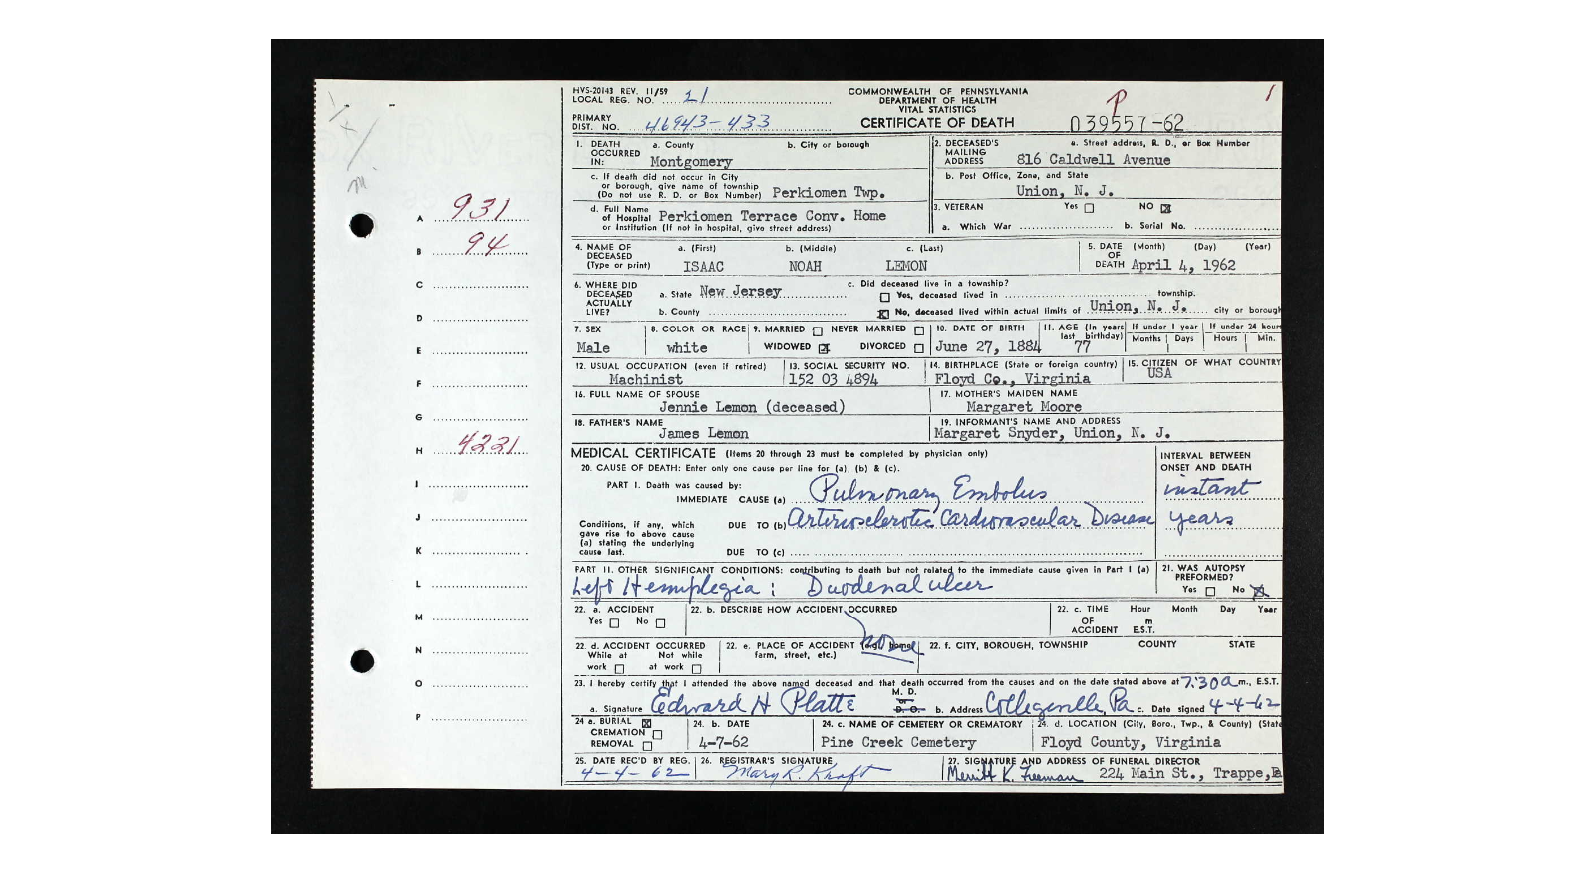 HVS-20143 REV. 11/59
LOCAL REG. NO. 21
COMMONWEALTH OF PENNSYLVANIA
DEPARTMENT OF HEALTH
VITAL STATISTICS
CERTIFICATE OF DEATH
P
1
PRIMARY
DIST. NO. 46943-433
039557-62
1. DEATH OCCURRED IN: a. County Montgomery b. City or borough
2. DECEASED'S MAILING ADDRESS a. Street address, R. D., or Box Number
816 Caldwell Avenue
c. If death did not occur in City
or borough, give name of township
(Do not use R. D. or Box Number) Perkiomen Twp.
b. Post Office, Zone, and State
Union, N. J.
d. Full Name
of Hospital Perkiomen Terrace Conv. Home
or Institution (If not in hospital, give street address)
3. VETERAN Yes NO
a. Which War b. Serial No.
4. NAME OF DECEASED (Type or print) a. (First) b. (Middle) c. (Last)
ISAAC NOAH LEMON
5. DATE OF DEATH (Month) (Day) (Year)
April 4, 1962
6. WHERE DID DECEASED ACTUALLY LIVE? a. State New Jersey
b. County
c. Did deceased live in a township?
Yes, deceased lived in township.
No, deceased lived within actual limits of Union, N. J. city or borough
7. SEX
Male
8. COLOR OR RACE
white
9. MARRIED NEVER MARRIED
WIDOWED DIVORCED
10. DATE OF BIRTH
June 27, 1884
11. AGE (In years last birthday)
77
If under 1 year
Months Days
If under 24 hours
Hours Min.
12. USUAL OCCUPATION (even if retired)
Machinist
13. SOCIAL SECURITY NO.
152 03 4894
14. BIRTHPLACE (State or foreign country)
Floyd Co., Virginia
15. CITIZEN OF WHAT COUNTRY
USA
16. FULL NAME OF SPOUSE
Jennie Lemon (deceased)
17. MOTHER'S MAIDEN NAME
Margaret Moore
18. FATHER'S NAME
James Lemon
19. INFORMANT'S NAME AND ADDRESS
Margaret Snyder, Union, N. J.
MEDICAL CERTIFICATE (Items 20 through 23 must be completed by physician only)
20. CAUSE OF DEATH: Enter only one cause per line for (a) (b) & (c).
INTERVAL BETWEEN
ONSET AND DEATH
PART I. Death was caused by:
IMMEDIATE CAUSE (a) Pulmonary Embolus instant
Conditions, if any, which
gave rise to above cause
(a) stating the underlying
cause last.
DUE TO (b) Arteriosclerotic Cardiovascular Disease years
DUE TO (c)
PART II. OTHER SIGNIFICANT CONDITIONS: contributing to death but not related to the immediate cause given in Part I (a)
Left Hemiplegia; Duodenal ulcer
21. WAS AUTOPSY
PREFORMED?
Yes No
22. a. ACCIDENT
Yes No
22. b. DESCRIBE HOW ACCIDENT OCCURRED
none
22. c. TIME OF ACCIDENT Hour Month Day Year
m
E.S.T.
22. d. ACCIDENT OCCURRED
While at work Not while at work
22. e. PLACE OF ACCIDENT (e.g. home, farm, street, etc.)
22. f. CITY, BOROUGH, TOWNSHIP COUNTY STATE
23. I hereby certify that I attended the above named deceased and that death occurred from the causes and on the date stated above at 7:30 a m., E.S.T.
a. Signature Edward H Platte M. D. or D. O. b. Address Collegeville, Pa c. Date signed 4-4-62
24 a. BURIAL
CREMATION
REMOVAL
24. b. DATE
4-7-62
24. c. NAME OF CEMETERY OR CREMATORY
Pine Creek Cemetery
24. d. LOCATION (City, Boro., Twp., & County) (State
Floyd County, Virginia
25. DATE REC'D BY REG.
4-4-62
26. REGISTRAR'S SIGNATURE
Mary R. Kraft
27. SIGNATURE AND ADDRESS OF FUNERAL DIRECTOR
Merritt K. Freeman 224 Main St., Trappe, Pa
A 931
B 94
C
D
E
F
G
H 4221
I
J
K
L
M
N
O
P